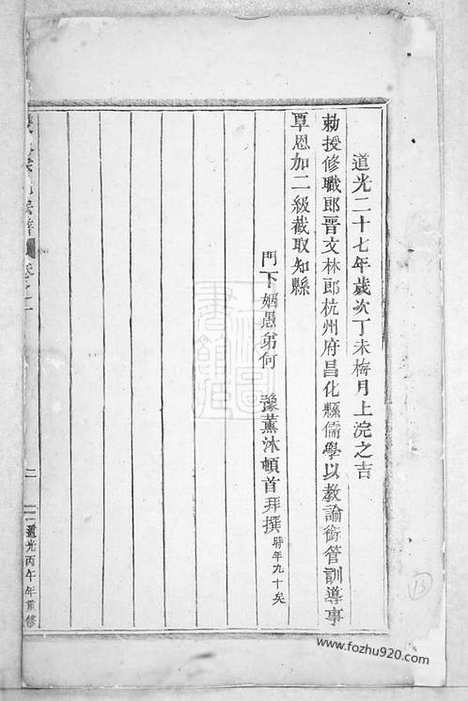 道光二十七年歲次丁未梅月上浣之吉
勅授修職郎晋文林郎杭州府昌化縣儒學以教諭銜管訓導事
覃恩加二級截取知縣
門下姻愚弟何 豫薰沐頓首拜撰 時年九十矣
卷之一
二
道光丙午年重修
13
www.fozhu920.com